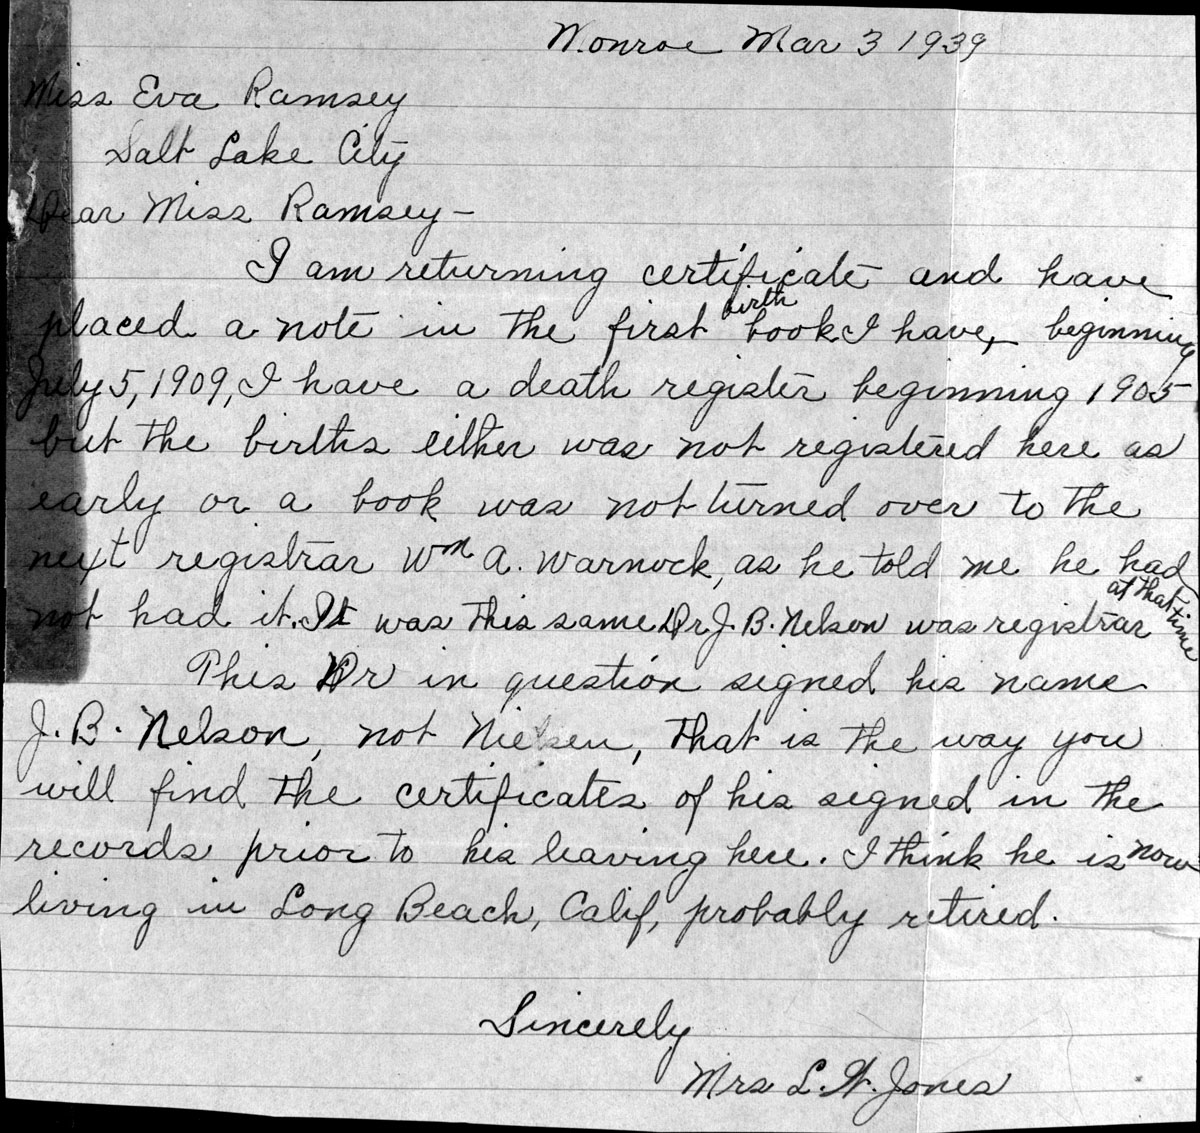 Monroe Mar 3 1939
Miss Eva Ramsey
Salt Lake City
Dear Miss Ramsey -
I am returning certificate and have
placed a note in the first birth book I have, beginning
July 5, 1909, I have a death register beginning 1905
but the births either was not registered here as
early or a book was not turned over to the
next registrar Wm A. Warnock, as he told me he had
not had it. It was this same Dr J. B. Nelson was registrar at that time
This Dr in question signed his name
J. B. Nelson, not Nielsen, that is the way you
will find the certificates of his signed in the
records prior to his leaving here. I think he is now
living in Long Beach, Calif, probably retired.
Sincerely
Mrs L. W. Jones